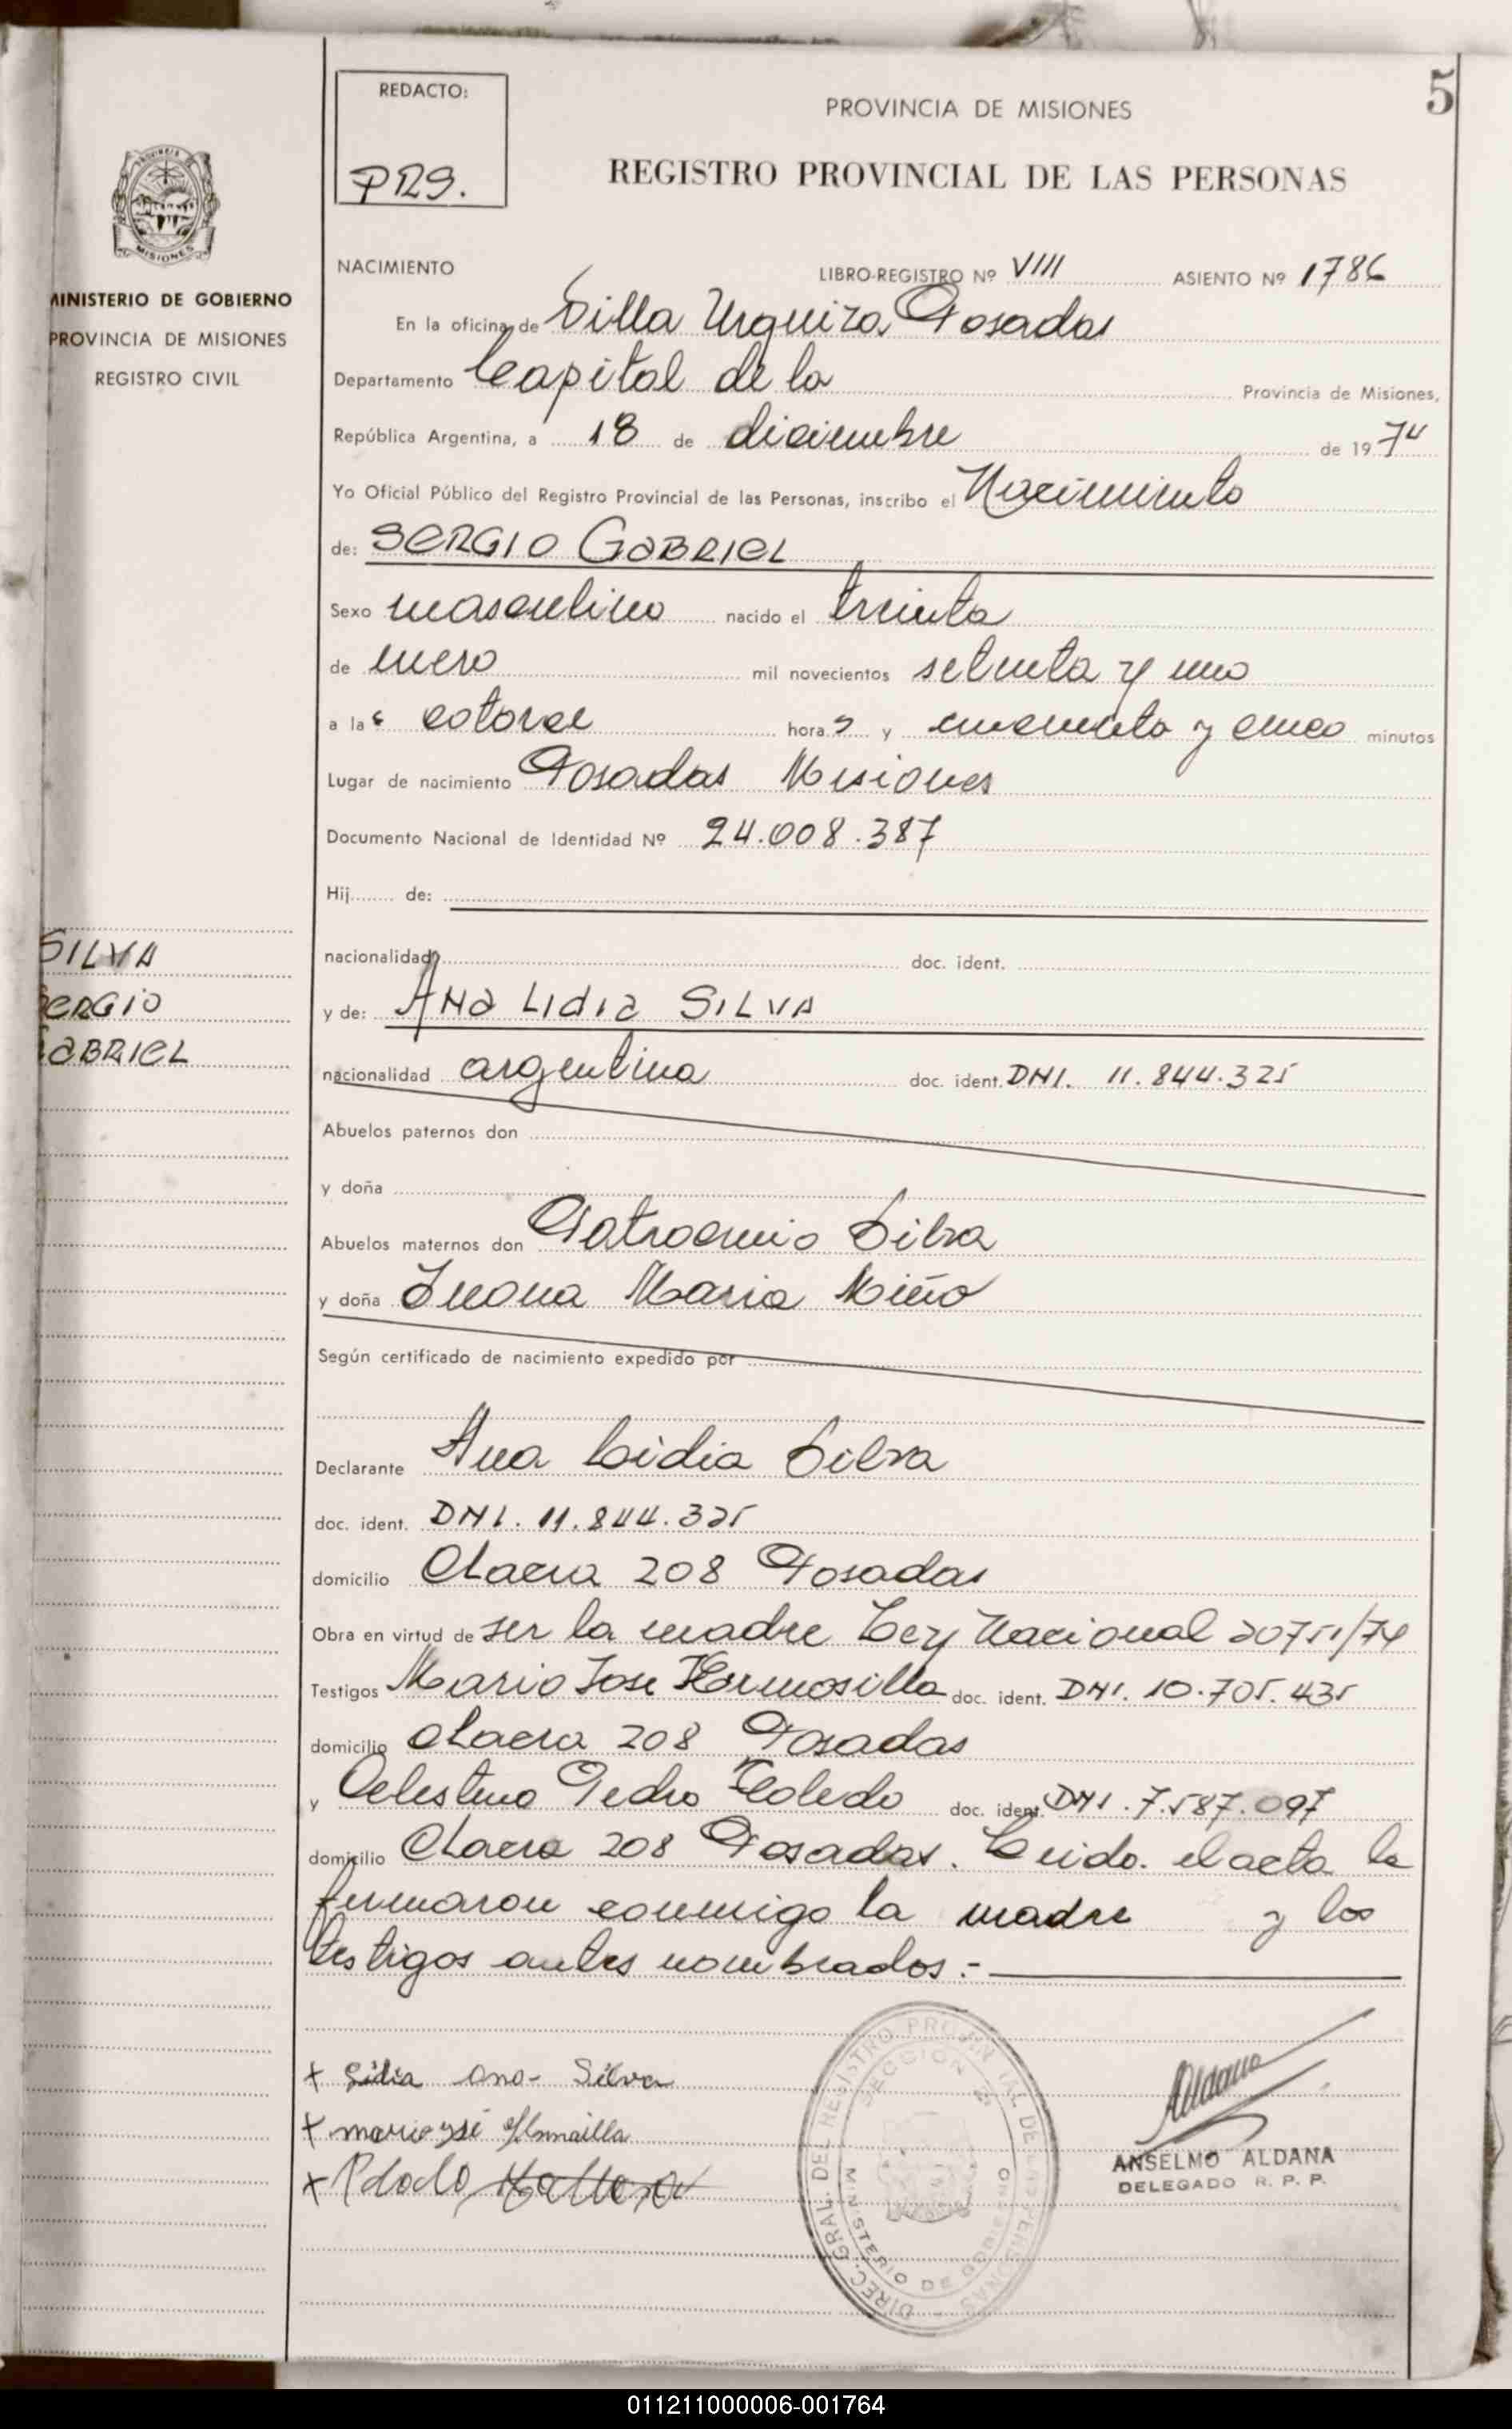 5
REDACTO:
PRS.
PROVINCIA DE MISIONES
REGISTRO PROVINCIAL DE LAS PERSONAS
MISIONES
MINISTERIO DE GOBIERNO
PROVINCIA DE MISIONES
REGISTRO CIVIL
NACIMIENTO LIBRO-REGISTRO Nº VIII ASIENTO Nº 1786
En la oficina de Villa Urquiza Posadas
Departamento Capital de la Provincia de Misiones,
República Argentina, a 18 de diciembre de 1974
Yo Oficial Público del Registro Provincial de las Personas, inscribo el Nacimiento
de: SERGIO GABRIEL
Sexo masculino nacido el treinta
de enero mil novecientos setenta y uno
a las catorce horas y cincuenta y cinco minutos
Lugar de nacimiento Posadas Misiones
Documento Nacional de Identidad Nº 24.008.387
Hij de:
nacionalidad doc. ident.
SILVA
SERGIO
GABRIEL
y de: Ana Lidia SILVA
nacionalidad argentina doc. ident. DNI. 11.844.325
Abuelos paternos don
y doña
Abuelos maternos don Patrocinio Silva
y doña Juana Maria Miño
Según certificado de nacimiento expedido por
Declarante Ana Lidia Silva
doc. ident. DNI. 11.844.325
domicilio Chacra 208 Posadas
Obra en virtud de ser la madre Ley Nacional 20751/74
Testigos Mario Jose Hermosilla doc. ident. DNI. 10.705.435
domicilio chacra 208 Posadas
y Celestino Pedro Toledo doc. ident. DNI. 7.587.097
domicilio Chacra 208 Posadas. Leido el acta la
firmaron conmigo la madre y los
testigos antes nombrados.-
+ Lidia Ana- Silva
+ mario jose
+
DIREC. GRAL. DEL REGISTRO PROVINCIAL DE LAS PERSONAS
SECCION
MINISTERIO DE GOBIERNO
Aldana
ANSELMO ALDANA
DELEGADO R. P. P.
011211000006-001764